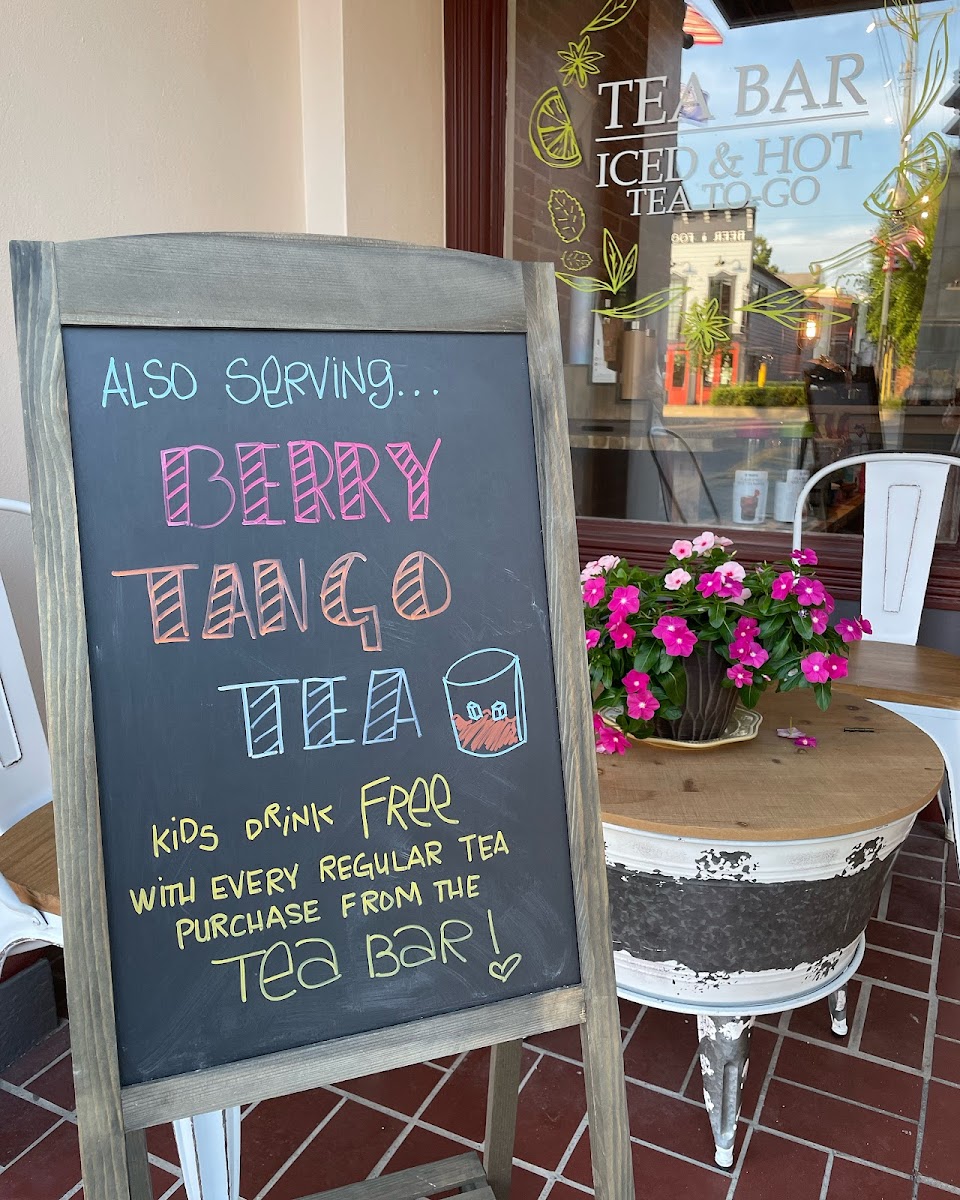 TEA BAR
ICED & HOT
TEA TO-GO
BEER & FOO
ALSO SERVING...
BERRY
TANGO
TEA
KIDS DRINK FREE
WITH EVERY REGULAR TEA
PURCHASE FROM THE
TEA BAR!